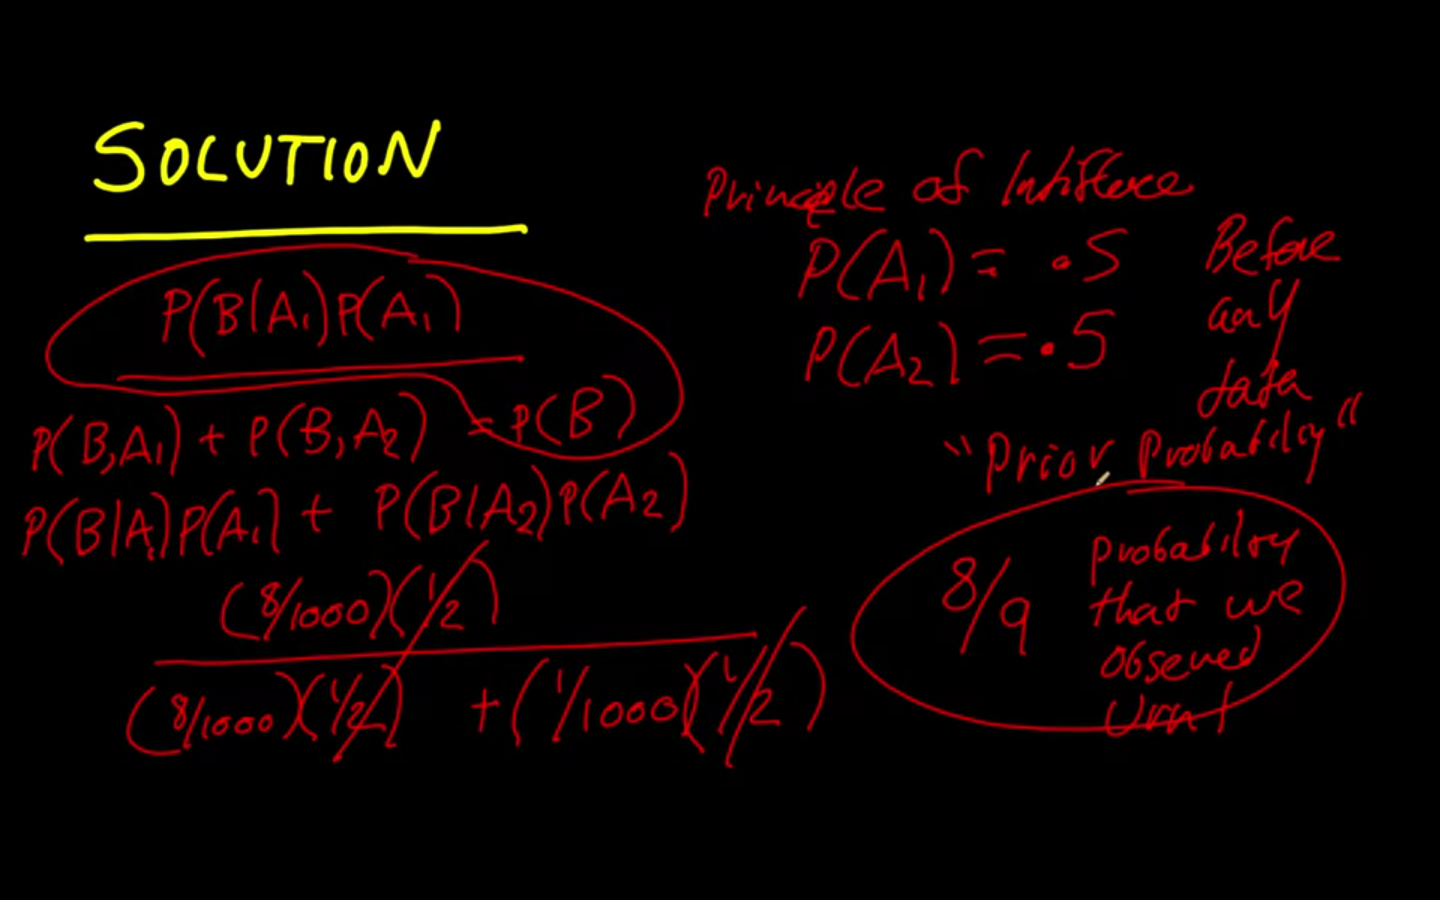 SOLUTION
P(B|A₁)P(A₁)
P(B,A₁) + P(B,A₂) = P(B)
P(B|A₁)P(A₁) + P(B|A₂)P(A₂)
(8/1000)(1/2)
(8/1000)(1/2) + (1/1000)(1/2)
Principle of
P(A₁) = .5
P(A₂) = .5
Before
any
data
"Prior Probability"
8/9
probability
that we
observed
Urn 1